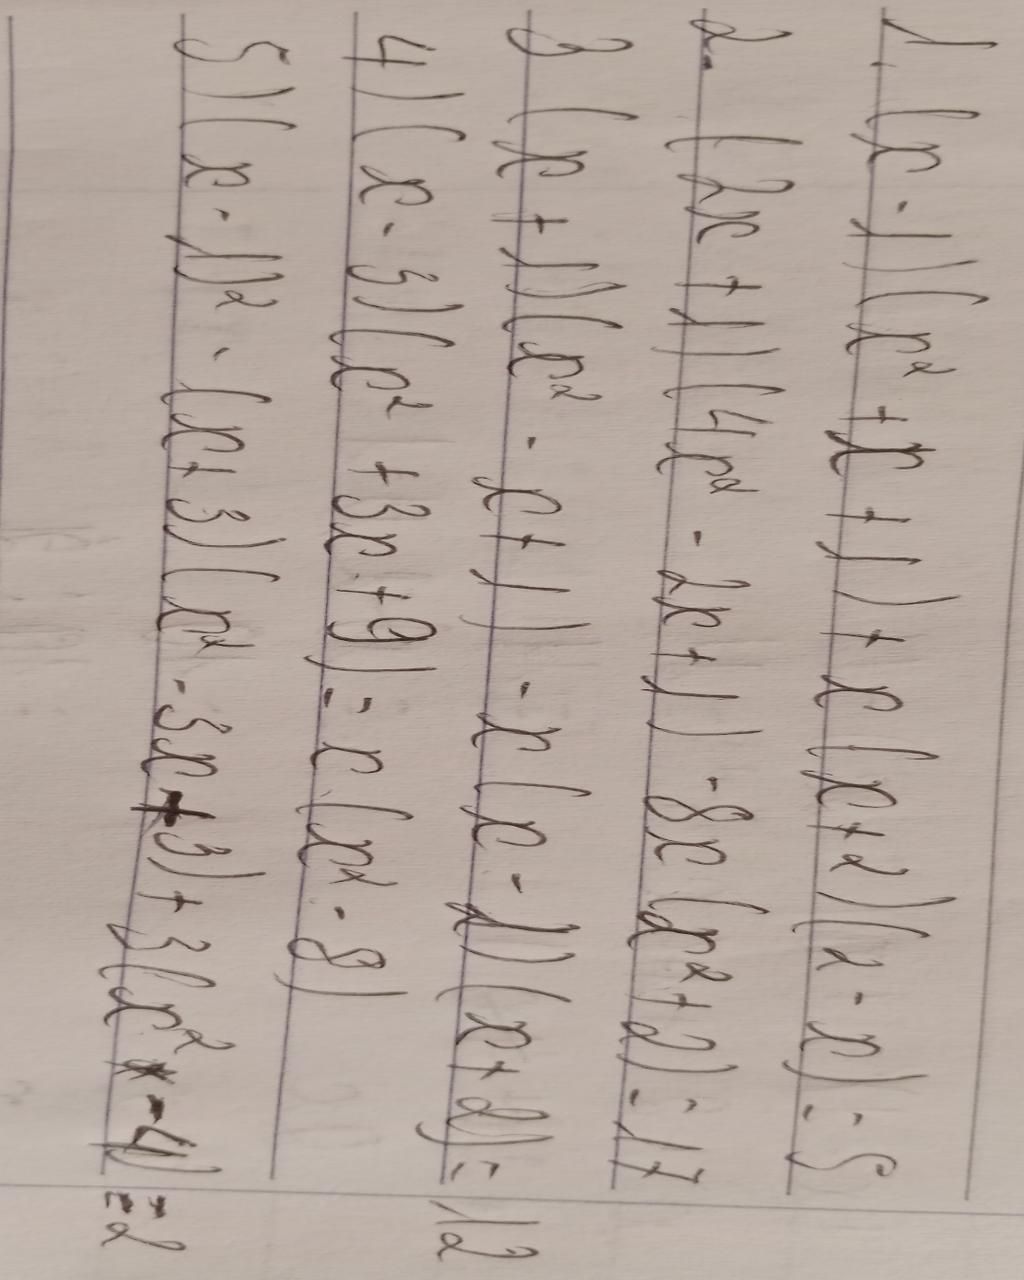 1. (x-1)(x²+x+1)+x(x+2)(2-x)=5
2. (2x+1)(4x²-2x+1)-8x(x²+2)=17
3 (x+1)(x²-x+1)-x(x-1)(x+2)=12
4) (x-3)(x²+3x+9)=x(x²-8)
5) (x-1)²-(x+3)(x²-3x+3)+3(x²-4)=2